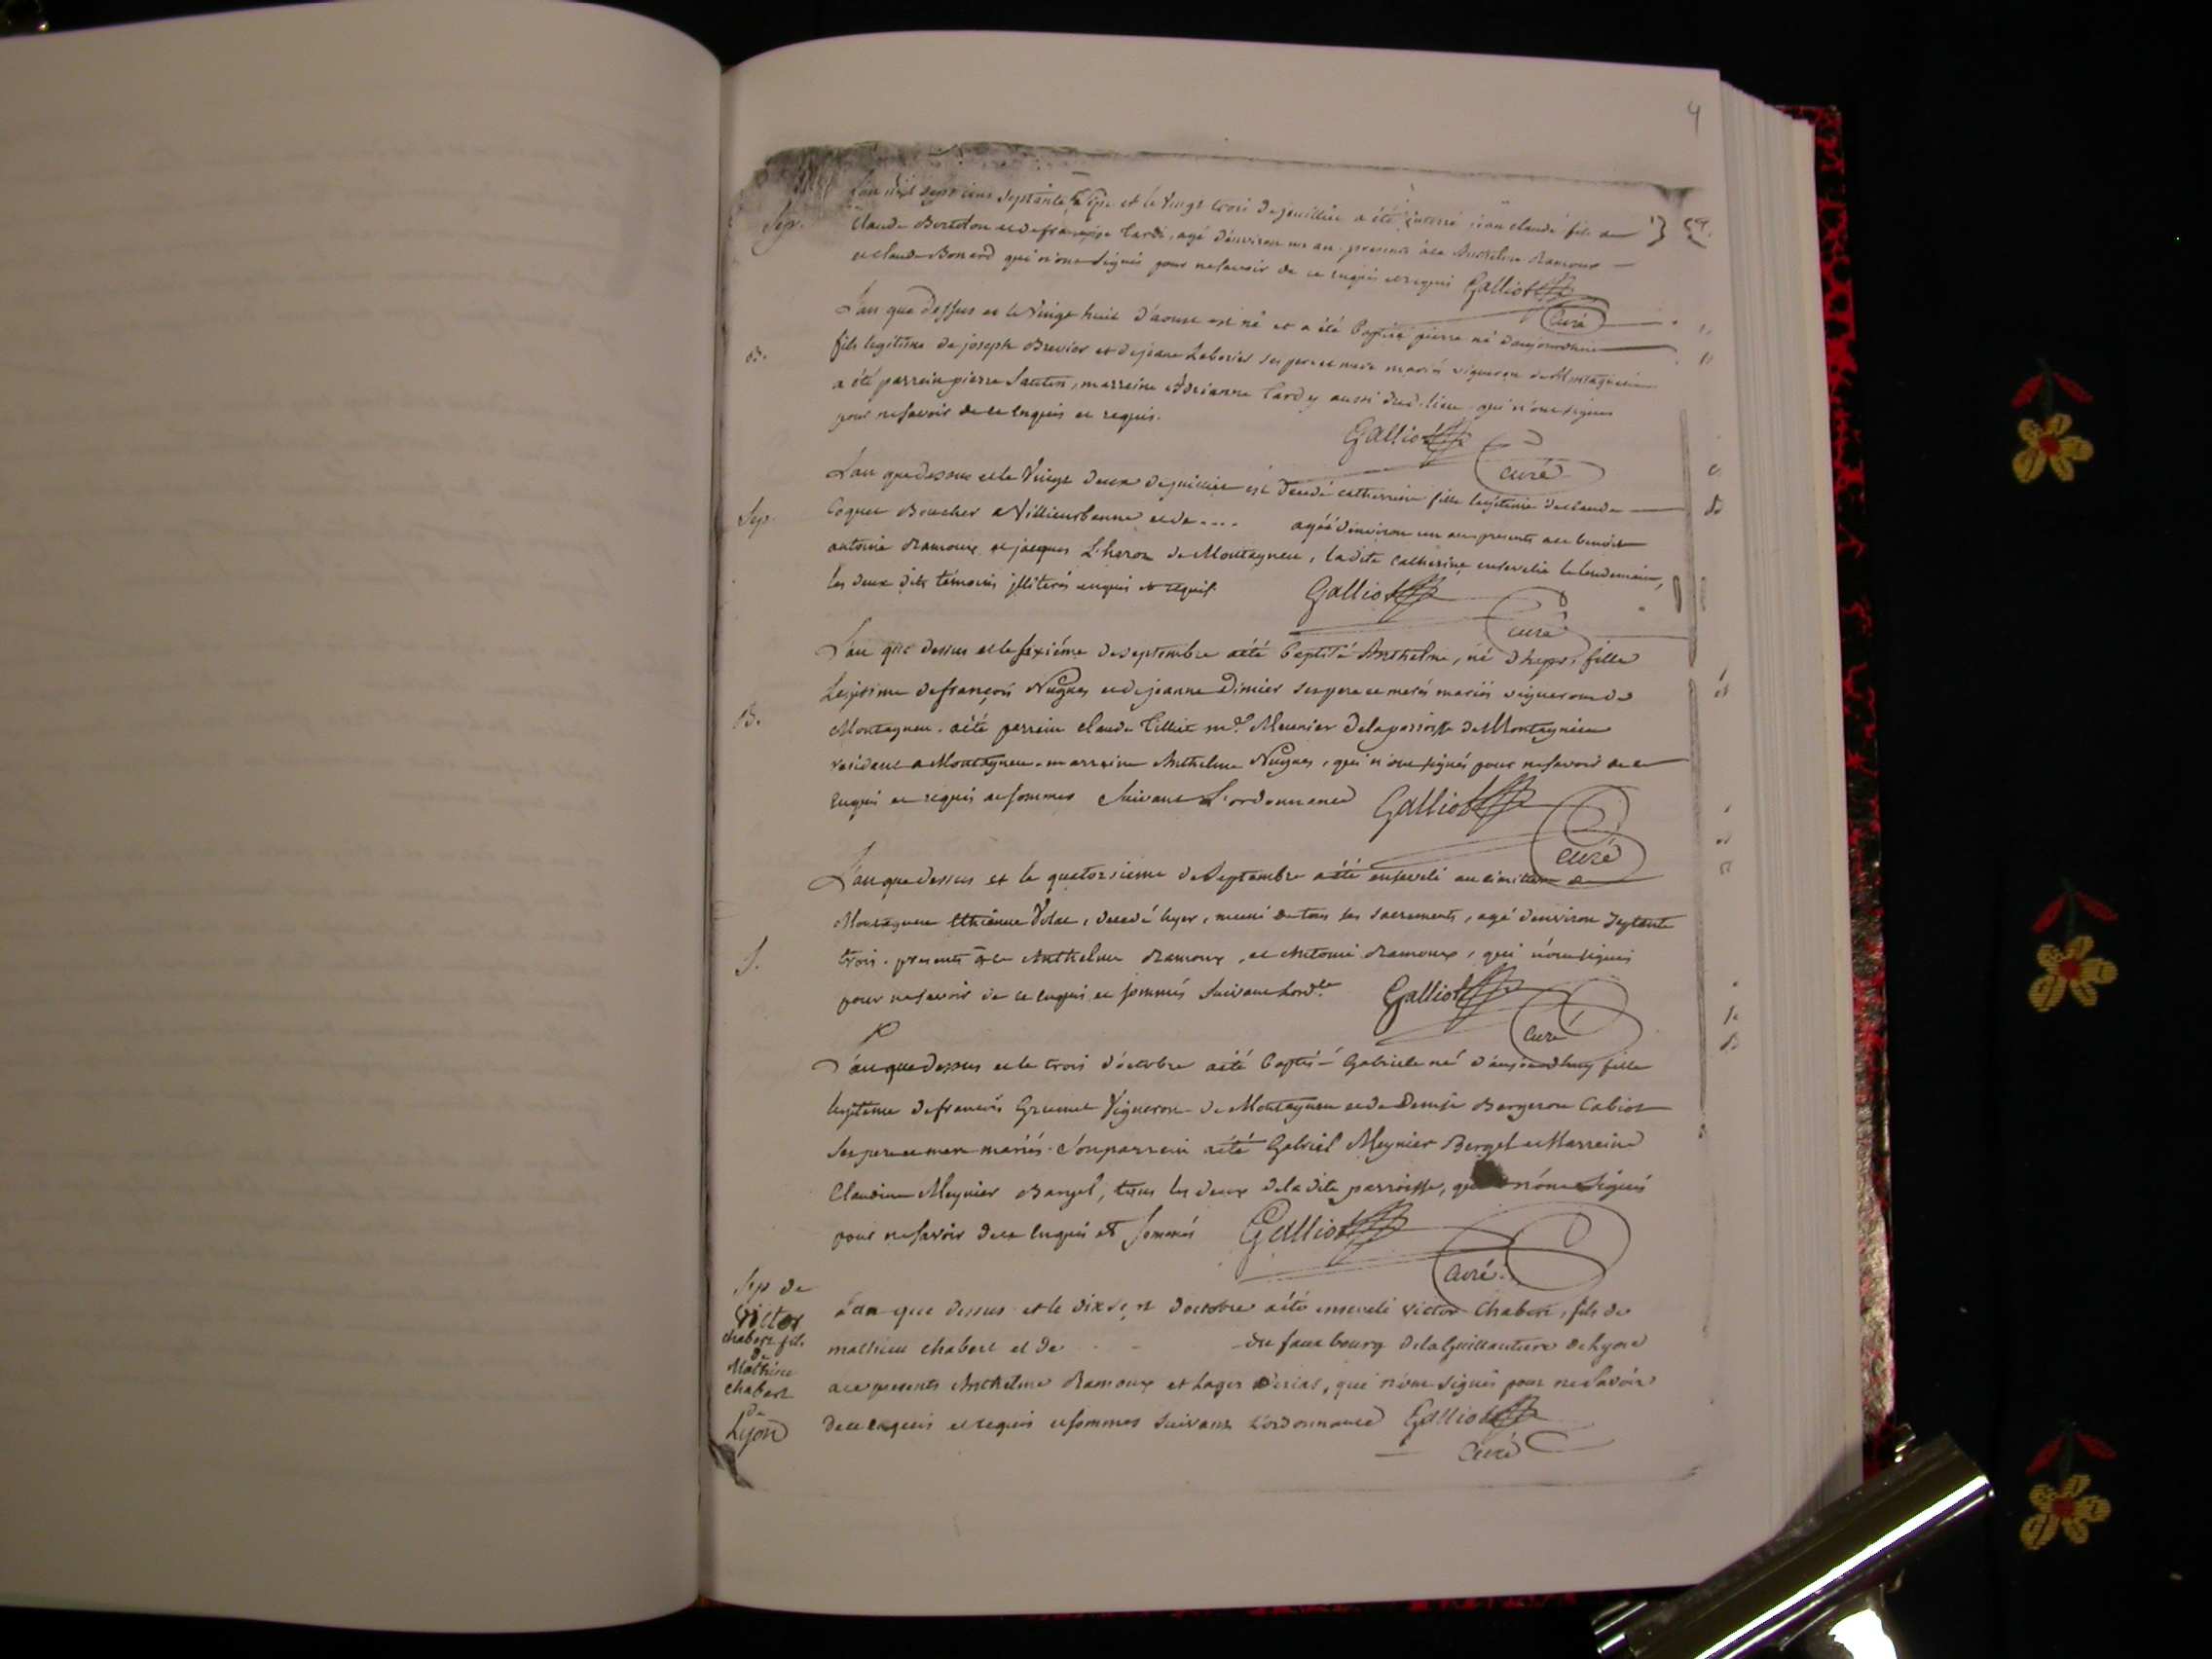 4
L'an mil sept cens septante et le vingt trois de juillier a été enterré jean claude fils de
Sep.
Claude Bertelon et de françoise Tardi, agé d'environ un an. presents à ce Anthelme Ramoux
et claude Bonard qui n'ont signés pour ne savoir de ce enquis et requis Galliot
Curé
L'an que dessus et le vingt huit d'aoust est né et a été Baptisé pierre né d'aujourdhuit
B.
fils legitime de joseph Brevier et de jeane ses pere et mere mariés vigneron de Montagnieu
a été parrein pierre, marreine Adrianne Tardy aussi dud. lieu qui n'ont signes
pour ne savoir de ce enquis et requis.
Galliot
curé
L'an que dessus et le vingt deux de juillier est decedé catherine fille legitime de claude
Sep.
Coquet Boucher a Villieurbanne et de .... agéé d'environ un an presents a ce benoit
antoine Ramoux et jacques L'heros de Montagneu, la dite Catherine ensevelie le lendemain,
les deux dits témoins illiterés enquis et requis.
Galliot
curé
L'an que dessus et le sixième de septembre a été baptisé Anthelme, né d'hyer, fille
Legitime de françois Nugues et de jeanne Dimier ses pere et merés mariés vigneron de
B.
Montagneu. a été parrein claude Tilliet md. Meunier de la paroisse de Montagnieu
residant a Montagneu. marreine Anthelme Nugues, qui n'ont signés pour ne savoir de ce
Enquis et requis et sommes suivant L'ordonnance Galliot
curé
L'an que dessus et le quatorsieme de Septembre a été enseveli au cimitiere de
Montagneu Ethienne, decedé hyer, muni de tous les sacrements, agé d'environ septante
S.
trois. presents a ce Anthelme Ramoux, et Antoine Ramoux, qui n'ont signés
pour ne savoir de ce enquis et sommés suivant l'ord.ce Galliot
Curé
L'an que dessus et le trois d'octobre a été baptis Gabriele né d'aujourdhuy fille
legitime de francois Grumet Vigneron de Montagneu et de Denise Bergeron Cabiot
ses pere et mere mariés. Son parrein a été Gabriel Meynier Bergel et Marreine
Claudine Meynier Bargel, tous les deux de la dite parroisse, qui n'ont signés
pour ne savoir de ce enquis et sommés Galliot
Curé.
Sep de
Victor
chabert fils
de
Mathieu
chabert
de
Lyon
L'an que dessus et le dix sept d'octobre a été enseveli victor Chabert, fils de
mathieu chabert et de du faux bourg de la Guillautiere de Lyon
a ce presents Anthelme Ramoux et, qui n'ont signés pour ne savoir
de ce enquis et requis et sommes suivant l'ordonnance Galliot
Curé